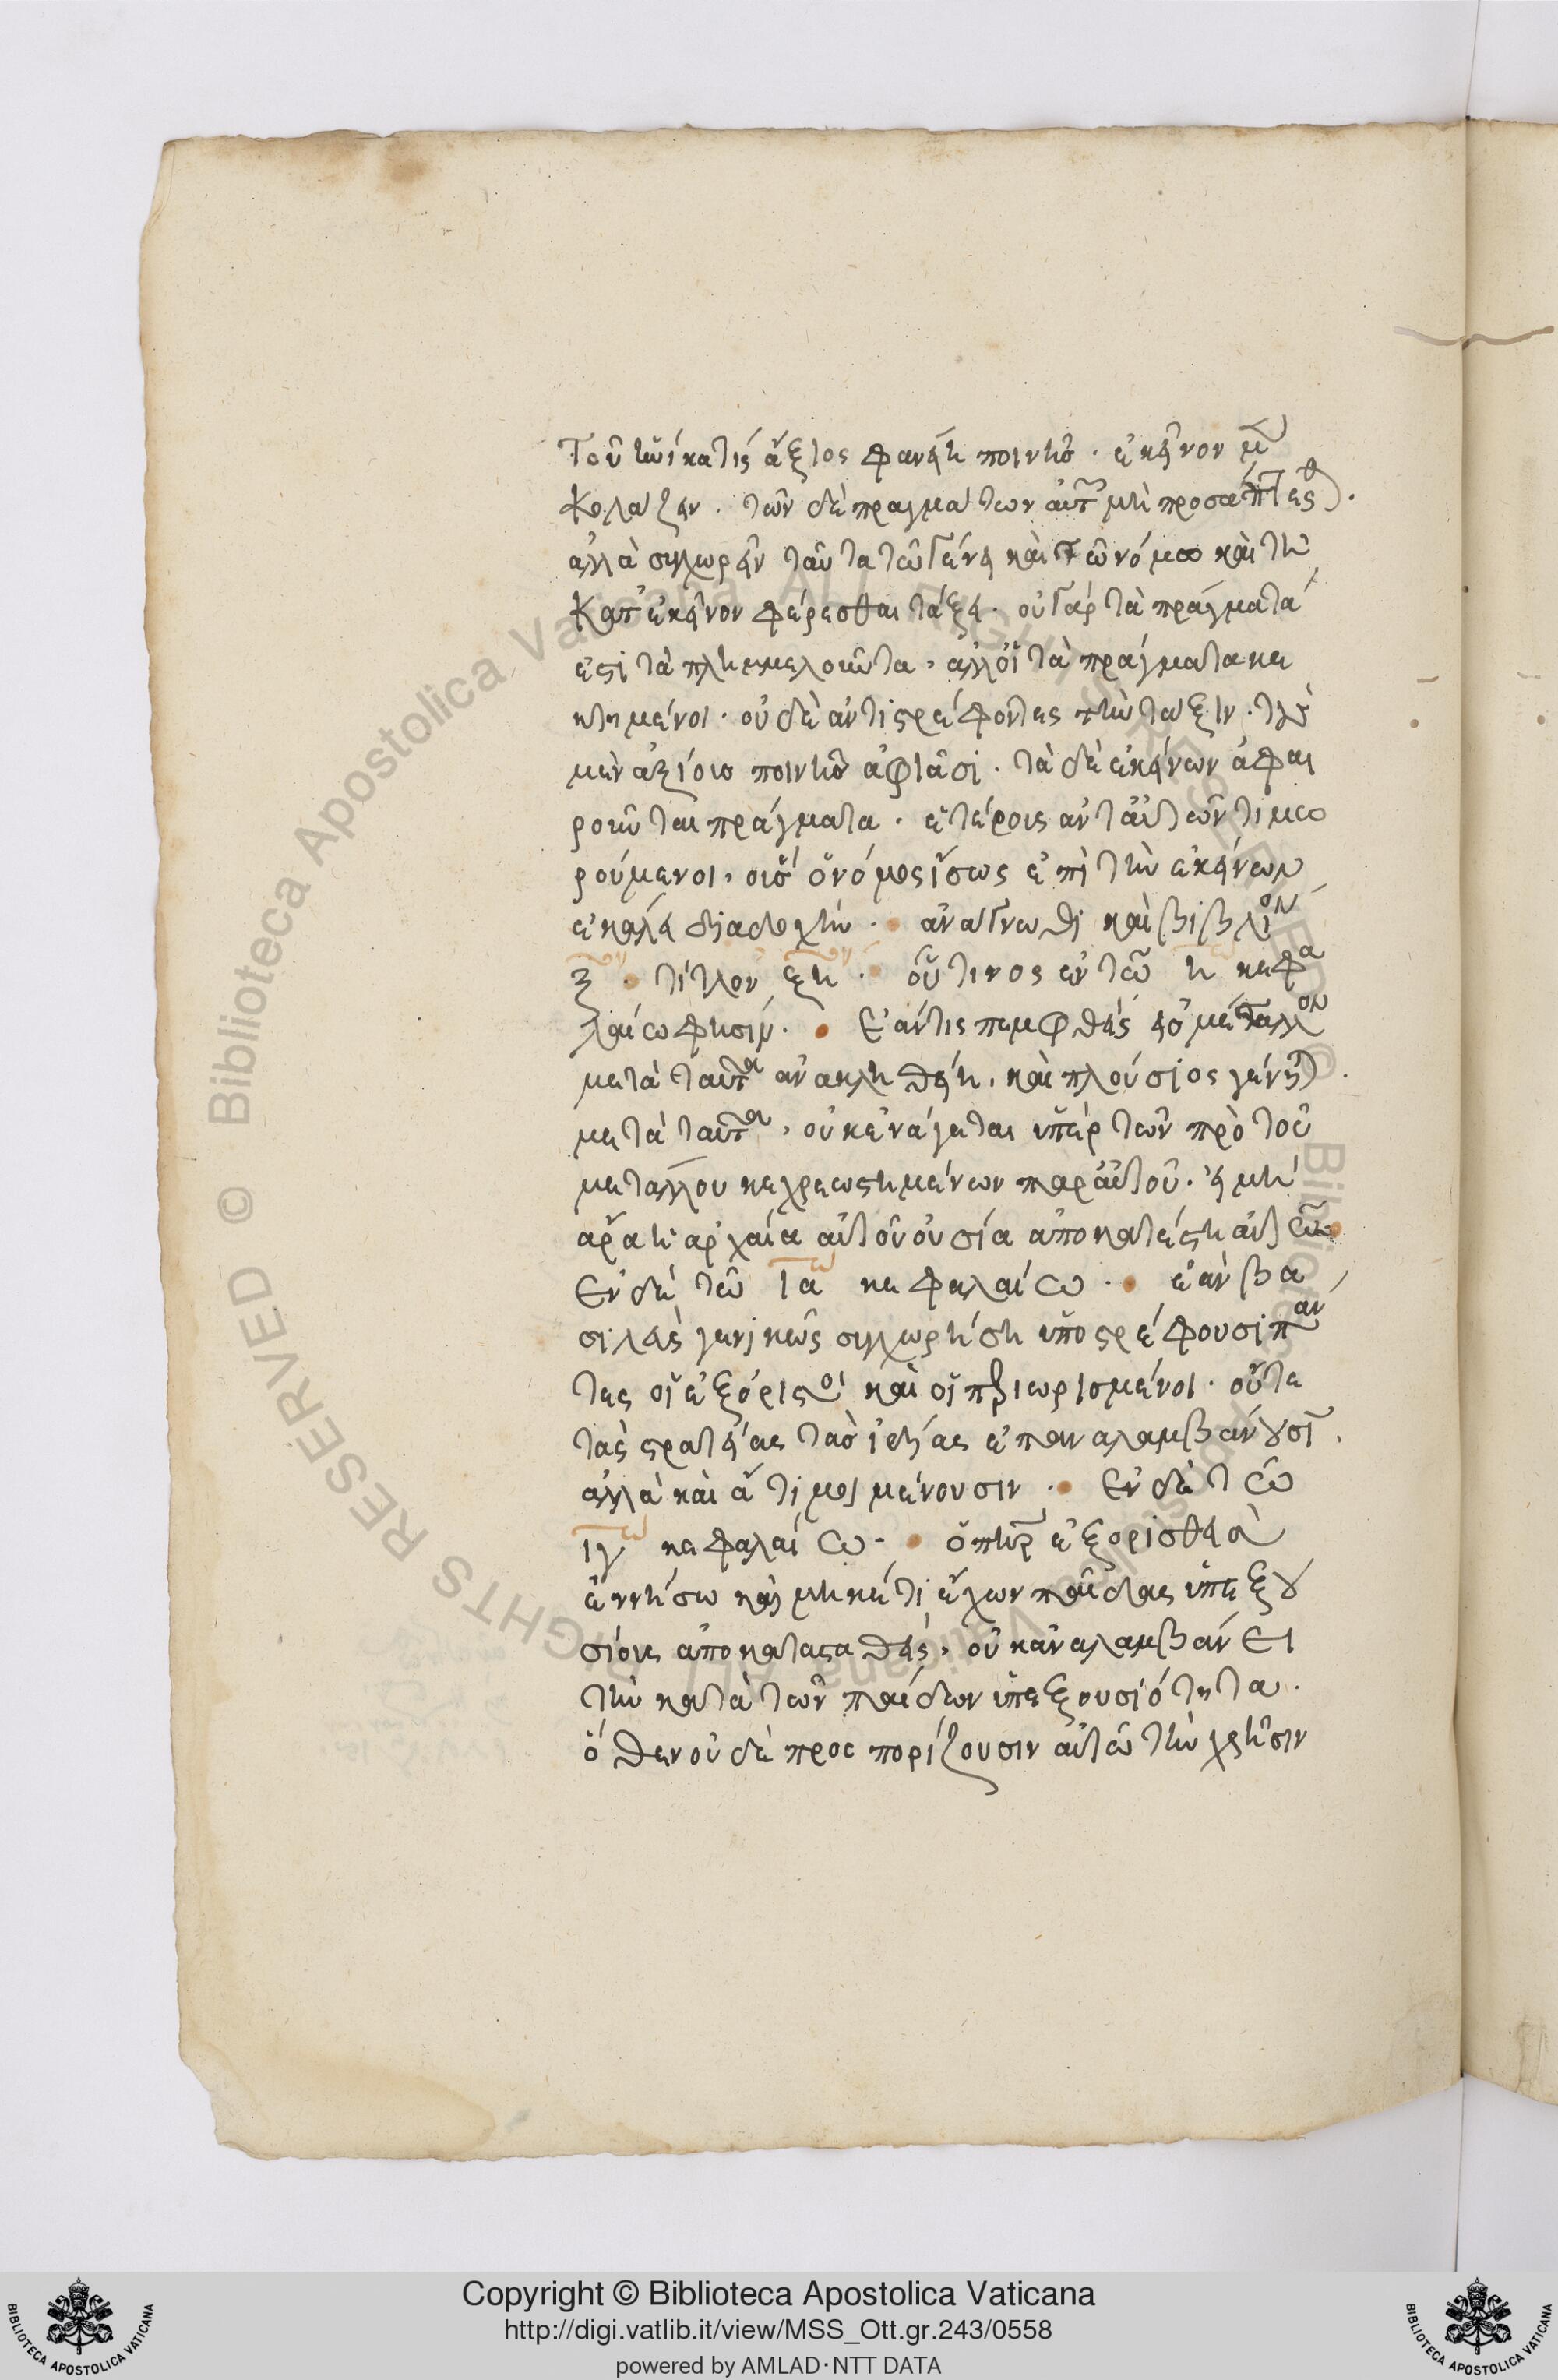 τούτω· ἵνα τίς ἄξιος φανείη ποινῆς· ἐκεῖνον μὲν
κολάζειν. τῶν δὲ πραγμάτων αὐτοῦ μὴ προσάπτεσθαι.
ἀλλὰ συγχωρεῖν ταῦτα τῶ γένει καὶ τῶ νόμω καὶ τῆ
κατ' ἐκεῖνον φέρεσθαι τάξει. οὐ γὰρ τὰ πράγματά
ἐστι τὰ πλημμελοῦντα, ἀλλ' οἱ τὰ πράγματα κε
κτημένοι. οἱ δὲ ἀντιστρέφοντες τὴν τάξιν. τοὺς
μὲν ἀξίους ποινῆς ἀφιᾶσι. τὰ δὲ ἐκείνων ἀφαι
ροῦνται πράγματα. ἑτέρους ἀντ' αὐτῶν τιμω
ρούμενοι, οὓς ὁ νόμος ἴσως ἐπὶ τὴν ἐκείνων
ἐκάλει διαδοχήν. ἀνάγνωθι καὶ βιβλίον
ξ τίτλον ξη. οὗτινος ἐν τῶ η κεφα
λαίω φησίν. Ἐάν τις πεμφθεὶς εἰς μέταλλον
μετὰ ταῦτα ἀνακληθείη, καὶ πλούσιος γένηται.
μετὰ ταῦτα, οὐκ ἐνάγεται ὑπὲρ τῶν πρὸ τοῦ
μετάλλου κεχρεωστημένων παρ' αὐτοῦ. εἰ μὴ
ἄρα ἡ ἀρχαία αὐτοῦ οὐσία ἀποκατέστη αὐτῶ
Ἐν δὲ τῶ ια κεφαλαίω. ἐὰν βα
σιλεὺς γενικῶς συγχωρήση ὑποστρέφουσι πάν
τες οἱ ἐξόριστοι καὶ οἱ περιωρισμένοι. οὔτε
τὰς στρατείας τὰς ἰδίας ἐπαναλαμβάνουσι.
ἀλλὰ καὶ ἄτιμοι μένουσιν. Ἐν δὲ τῶ
ιγ κεφαλαίω. ὁ πατὴρ ἐξορισθεὶς
ἐν νήσω καὶ μηκέτι ἔχων παῖδας ὑπεξου
σίους ἀποκατασταθεὶς, οὐκ ἀναλαμβάνει
τὴν κατὰ τῶν παίδων ὑπεξουσιότητα.
ὅθεν οὐδὲ προσπορίζουσιν αὐτῶ τὴν χρῆσιν
Copyright © Biblioteca Apostolica Vaticana
http://digi.vatlib.it/view/MSS_Ott.gr.243/0558
powered by AMLAD·NTT DATA
BIBLIOTECA APOSTOLICA VATICANA
BIBLIOTECA APOSTOLICA VATICANA
Biblioteca Apostolica Vaticana ALL RIGHTS RESERVED ©
Biblioteca Apostolica Vaticana ALL RIGHTS RESERVED ©